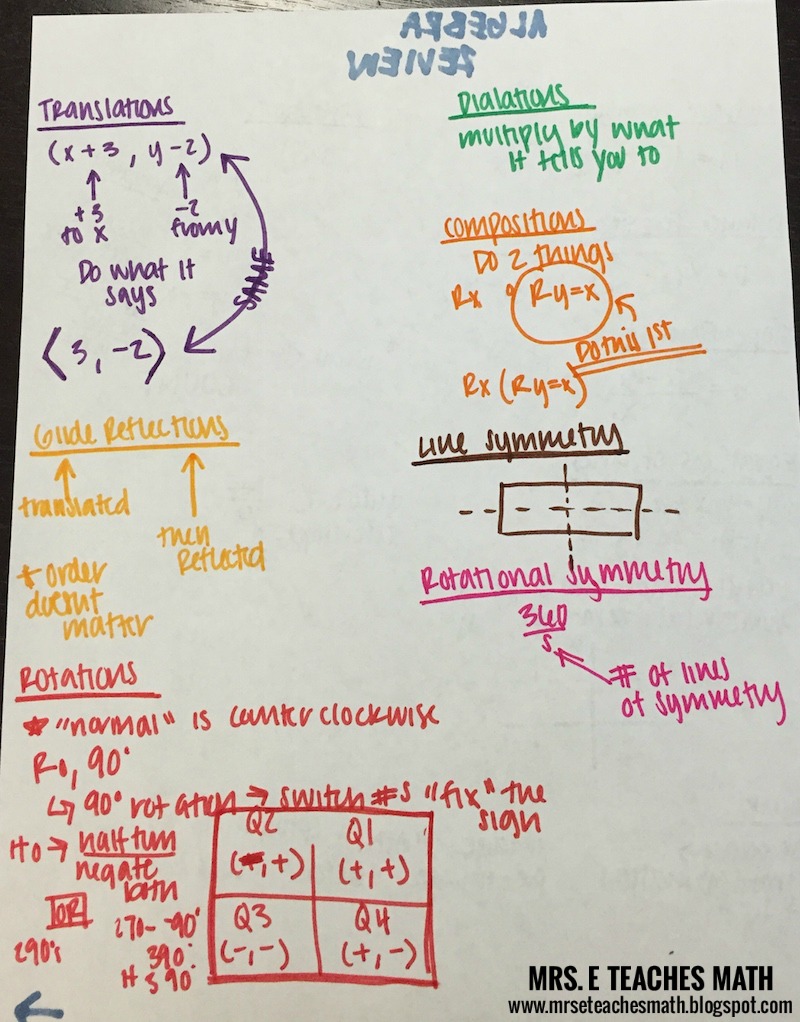 ALGEBRA
REVIEW
Translations
(x+3, y-2)
+3
to x
-2
from y
Do what it
says
SAME
⟨3, -2⟩
Glide Reflections
translated
then
Reflected
* order
doesn't
matter
Rotations
* "normal" is counter clockwise
R0, 90°
↳ 90° rotation → switch #s "fix" the
sign
H0 → half turn
negate
both
OR
290's
270- -90°
390°
Q2
(-,+)
Q1
(+,+)
Q3
(-,-)
Q4
(+,-)
Dialations
multiply by what
it tells you to
Compositions
Do 2 things
Rx ∘ Ry=x
Do this 1st
Rx (Ry=x)
Line symmetry
Rotational symmetry
360
s
# of lines
of symmetry
MRS. E TEACHES MATH
www.mrseteachesmath.blogspot.com